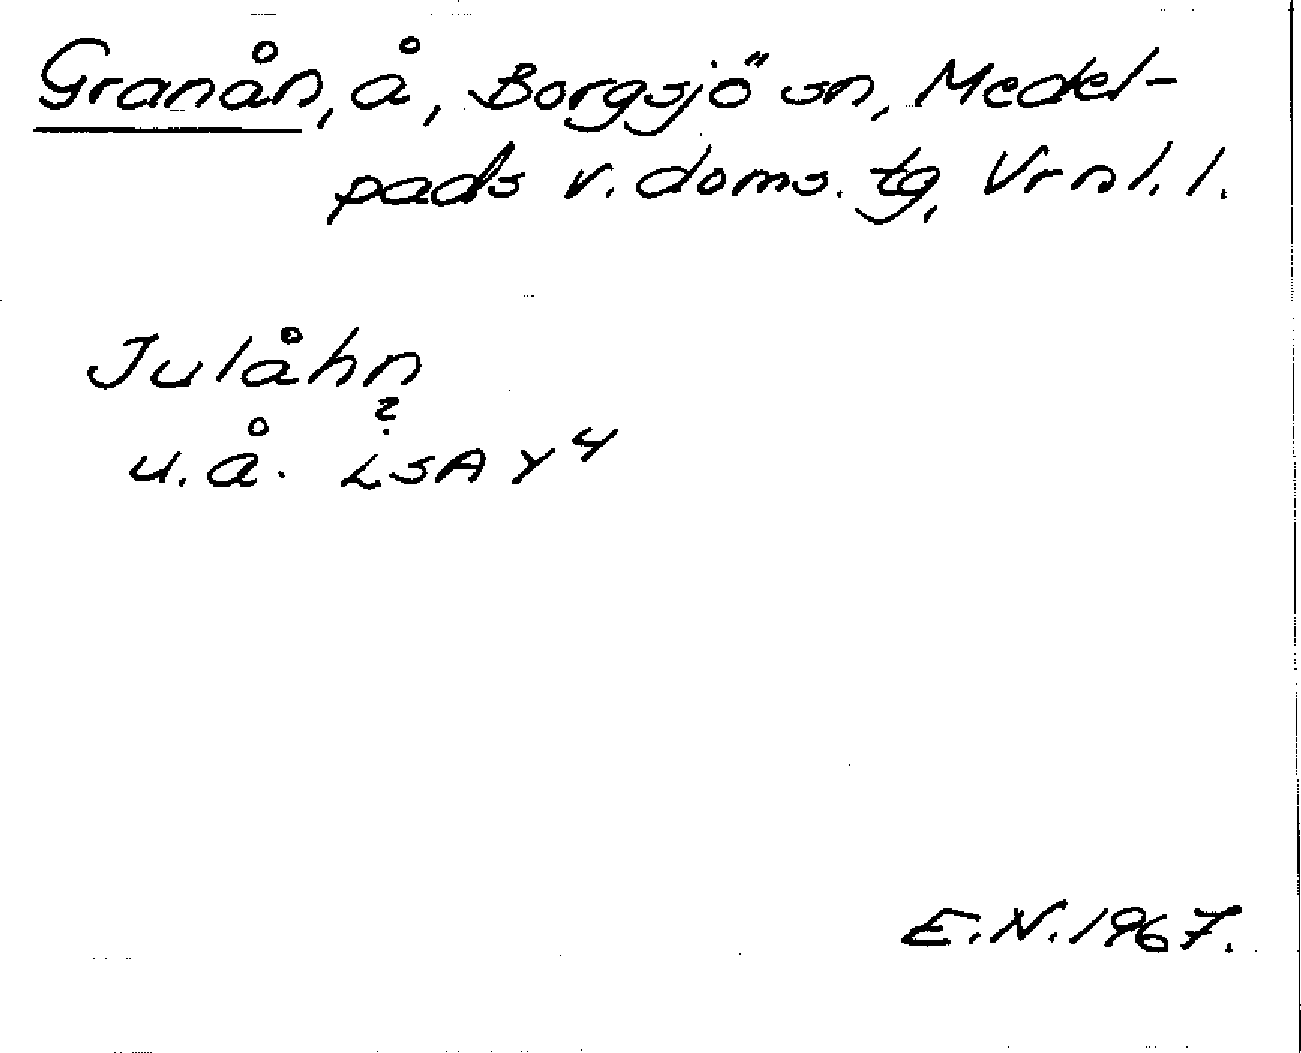 Granån, å, Borgsjö sn, Medel-
pads v. doms. tg, Vrnl. l.
Julåhn
?
u.å. LSA Y4
E.N. 1967.